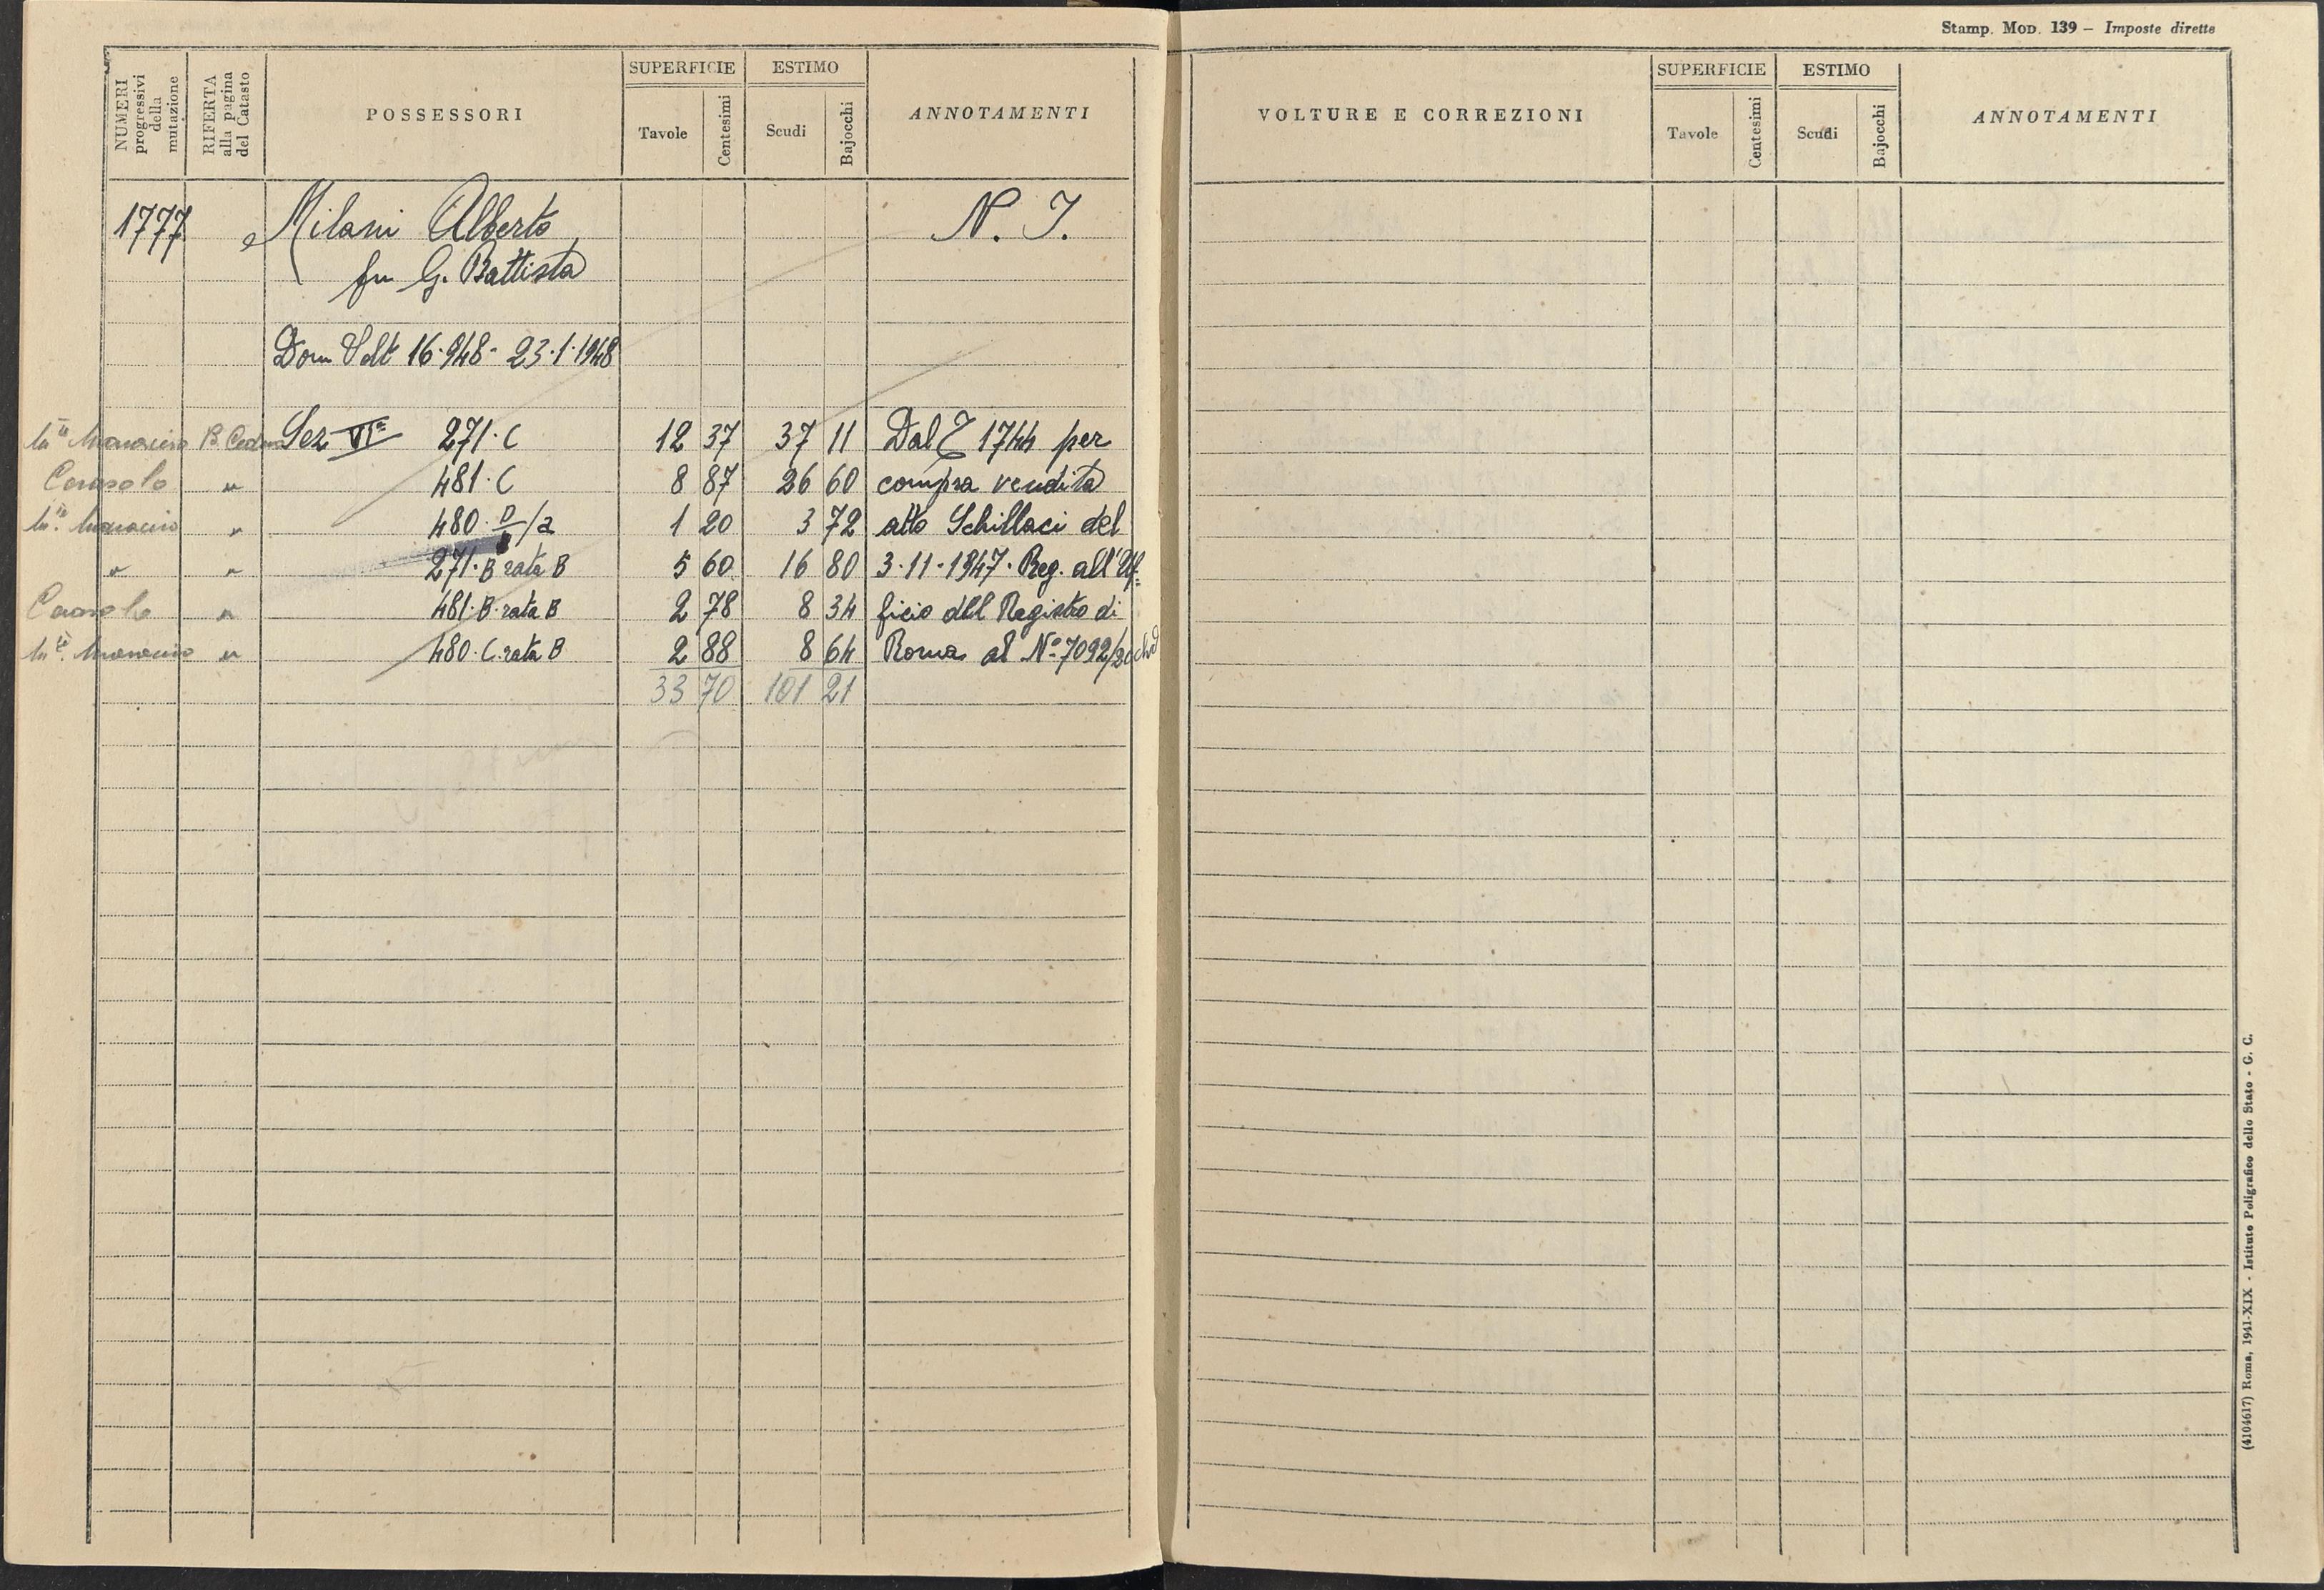 Stamp. Mod. 139 – Imposte dirette
NUMERI progressivi della mutazione
RIFERTA alla pagina del Catasto
POSSESSORI
SUPERFICIE
Tavole
Centesimi
ESTIMO
Scudi
Bajocchi
ANNOTAMENTI
VOLTURE E CORREZIONI
SUPERFICIE
Tavole
Centesimi
ESTIMO
Scudi
Bajocchi
ANNOTAMENTI
1777 Milani Alberto N. I.
fu G. Battista
Dom Volt 16·948 - 23·1·1948
Sez VIª 271·C 12 37 37 11 Dal 1744 per
" 481·C 8 87 26 60 compra vendita
" 480·D/a 1 20 3 72 atto Schillaci del
" " 271·B rata B 5 60 16 80 3·11·1947· Reg. all'Uf=
" 481·B·rata B 2 78 8 34 ficio del Registro di
" 480·C·rata B 2 88 8 64 Roma al Nº 7092/
33 70 101 21
(4104617) Roma, 1941-XIX - Istituto Poligrafico dello Stato - G. C.